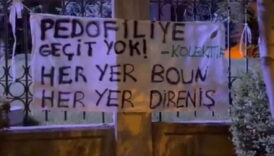 PEDOFİLİYE
GEÇİT YOK! -KOLEKTİF
HER YER BOUN
HER YER DİRENİŞ